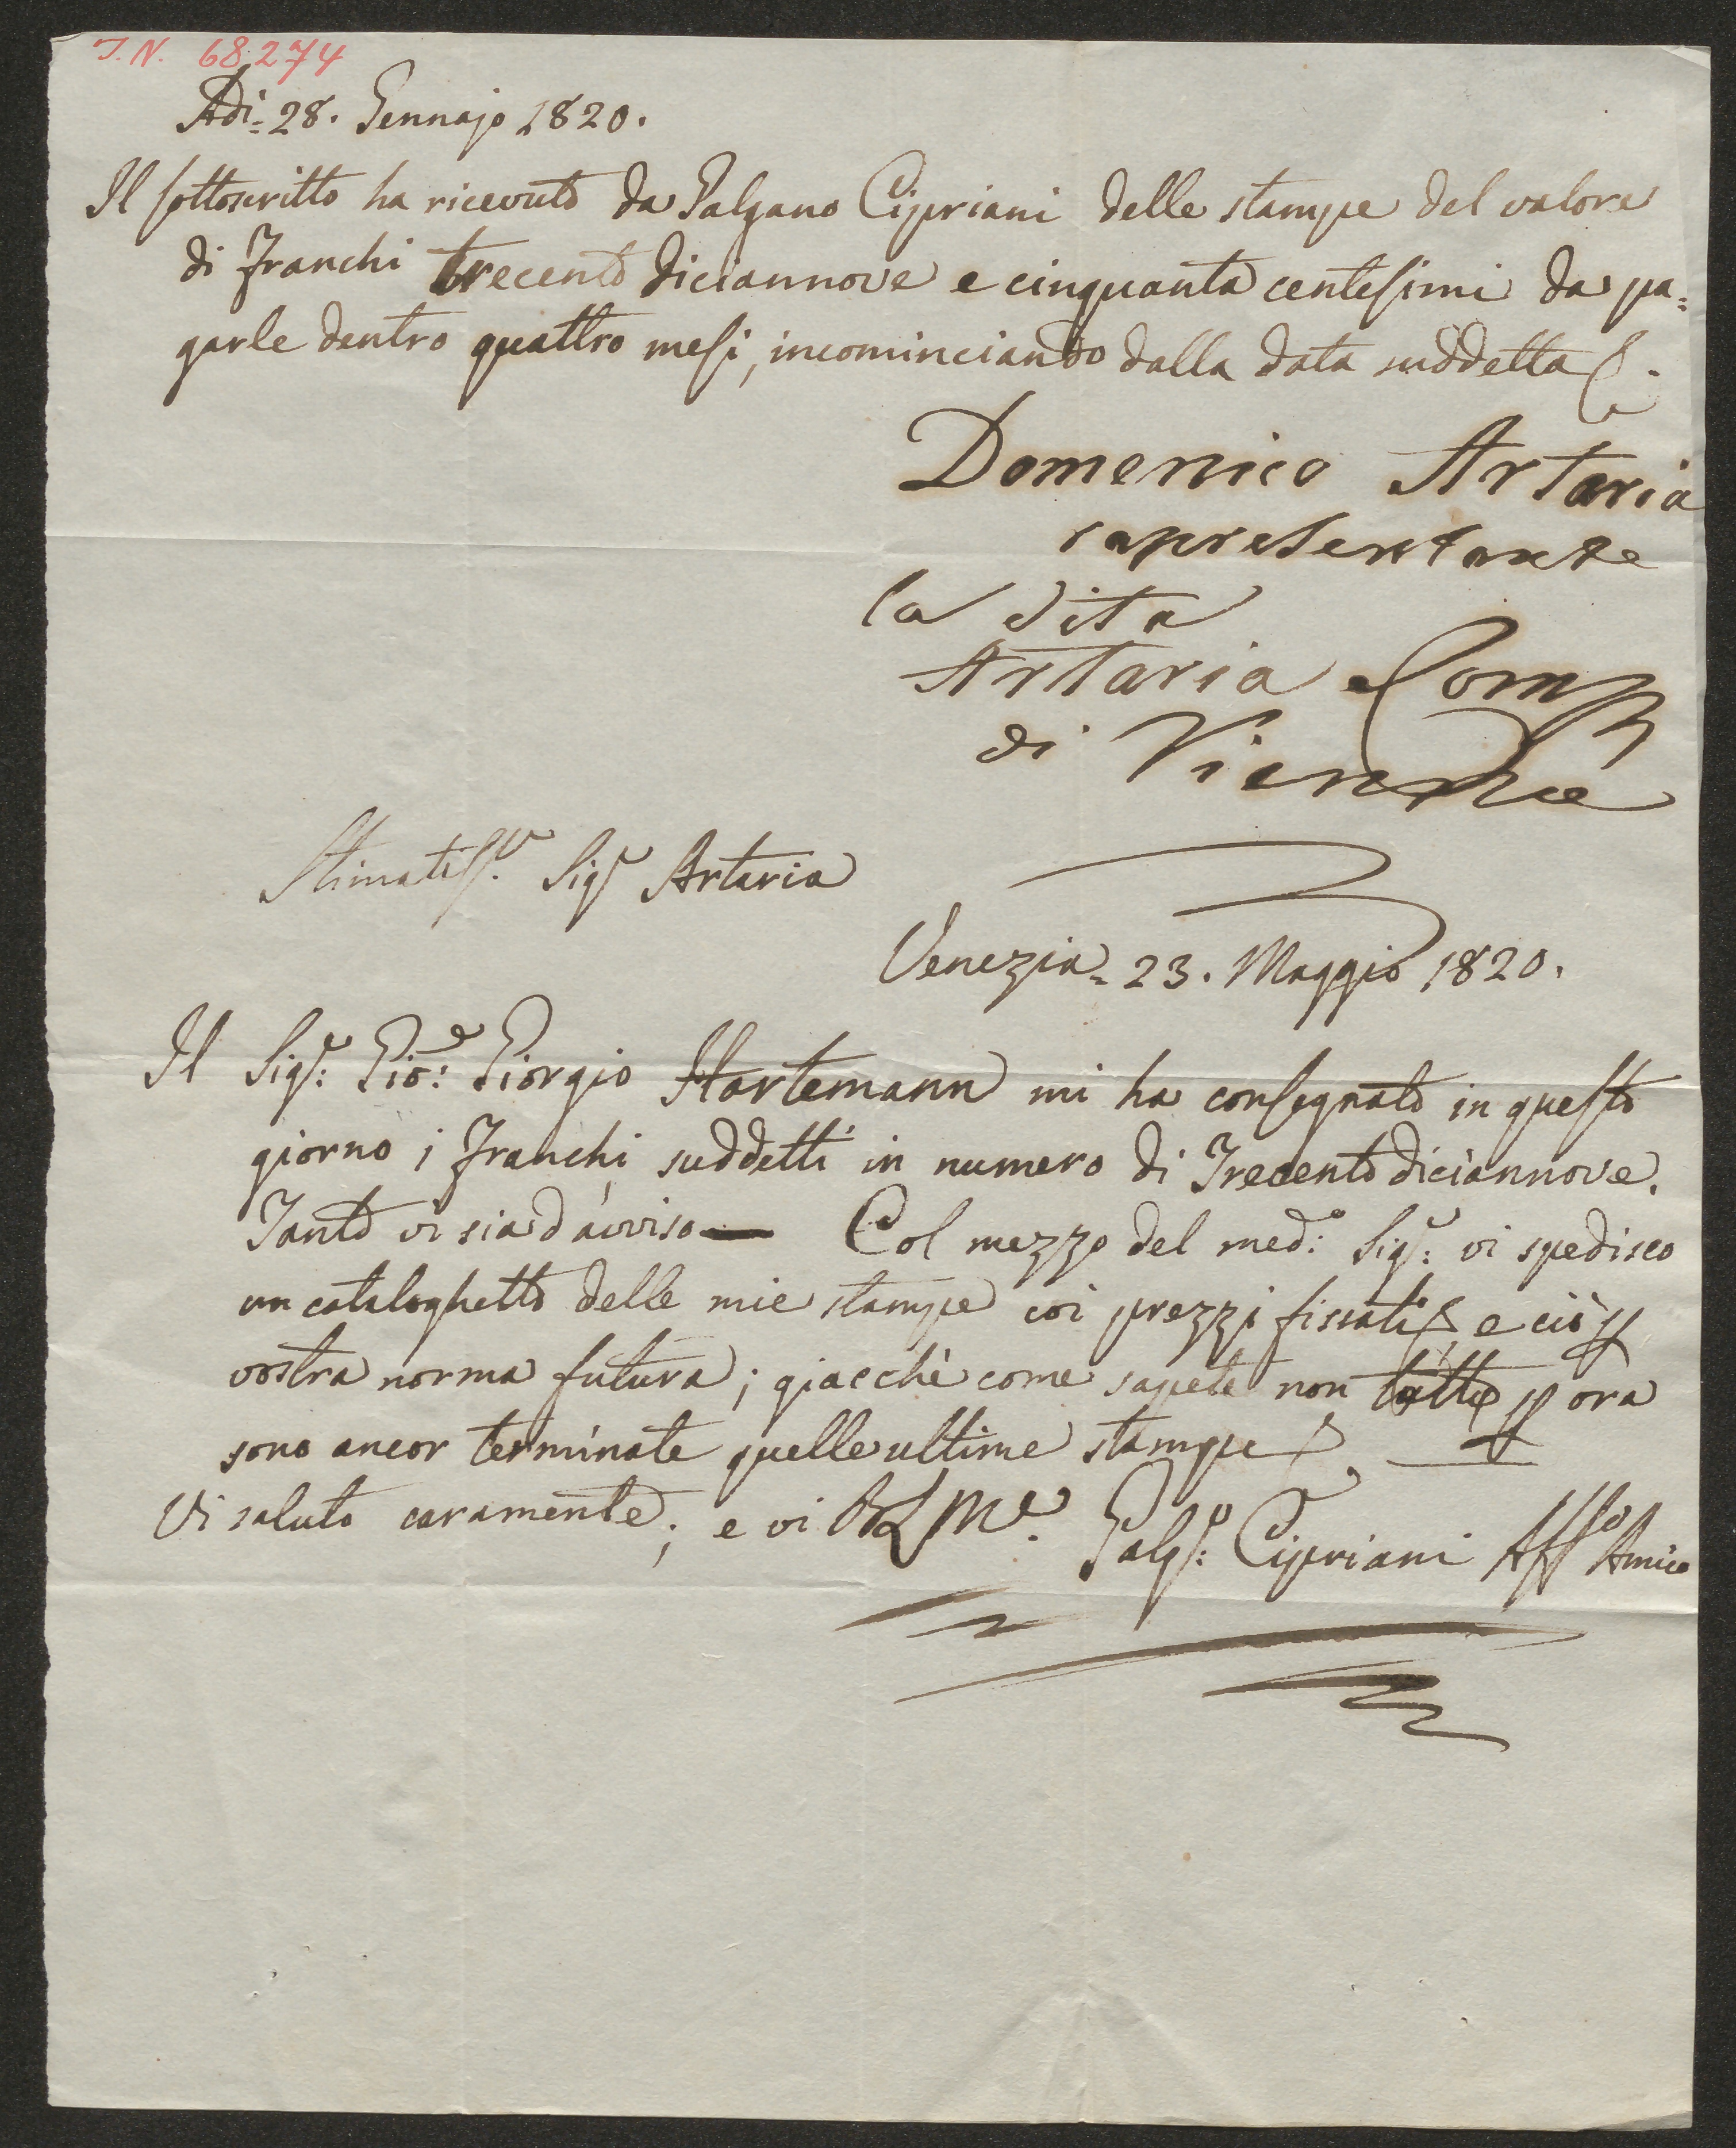 I.N. 68.274
Adi= 28. Gennajo 1820.
Il sottoscritto ha ricevuto da Galgano Cipriani delle stampe del valore
di Franchi trecento diciannove e cinquanta centesimi da pa=
garle dentro quattro mesi, incominciando dalla data suddetta
Domenico Artaria
rapresentante
la dita
Artaria e Comp
di Vienna
Stimatiss.o Sig.r Artaria
Venezia= 23. Maggio 1820.
Il Sig.r: Gio:e Giorgio Hartemann mi ha consegnato in questo
giorno i Franchi suddetti in numero di Trecento diciannove.
Tanto vi sia d'avviso— Col mezzo del med:o Sig.r: vi spedisco
un cataloghetto delle mie stampe coi prezzi fissati e ciò p
vostra norma futura; giacchè come sapete non tutte p ora
sono ancor terminate quelle ultime stampe
Vi saluto caramente; e vi BLMe. Galg:o Cipriani Aff.o Amico